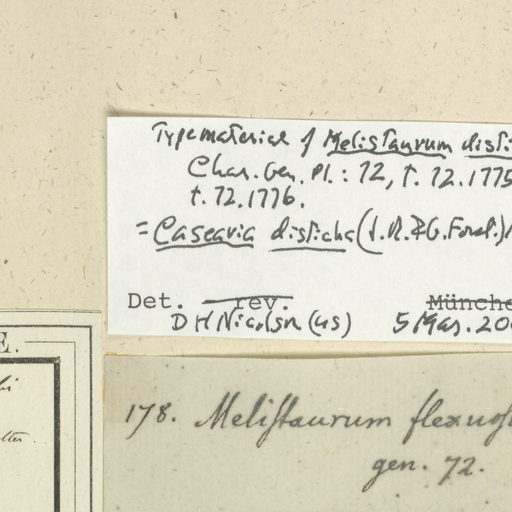 Type material of Melistaurum disti
Char. Gen. Pl.: 72, t. 72. 1775
t. 72. 1776.
= Casearia disticha (J.R. & G. Forst.)
Det. rev. Münche
D H Nicolson (US) 5 Mar. 20
E.
178. Melistaurum flexuos
gen. 72.